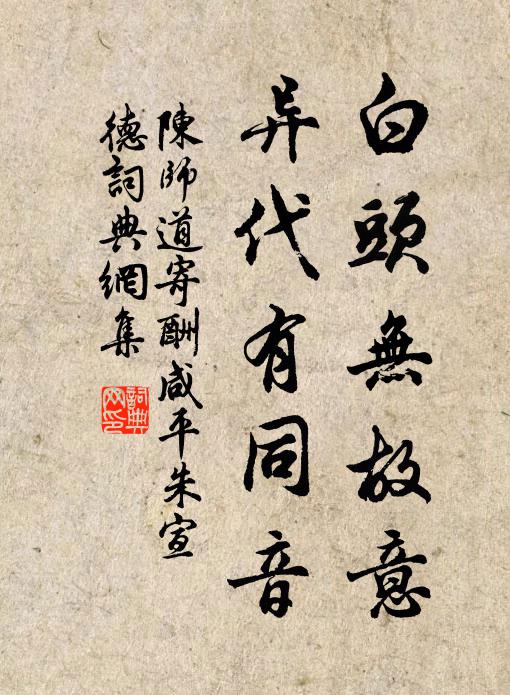 白頭無故意
异代有同音
陳師道寄酬咸平朱宣
德詞典網集
詞典
网印